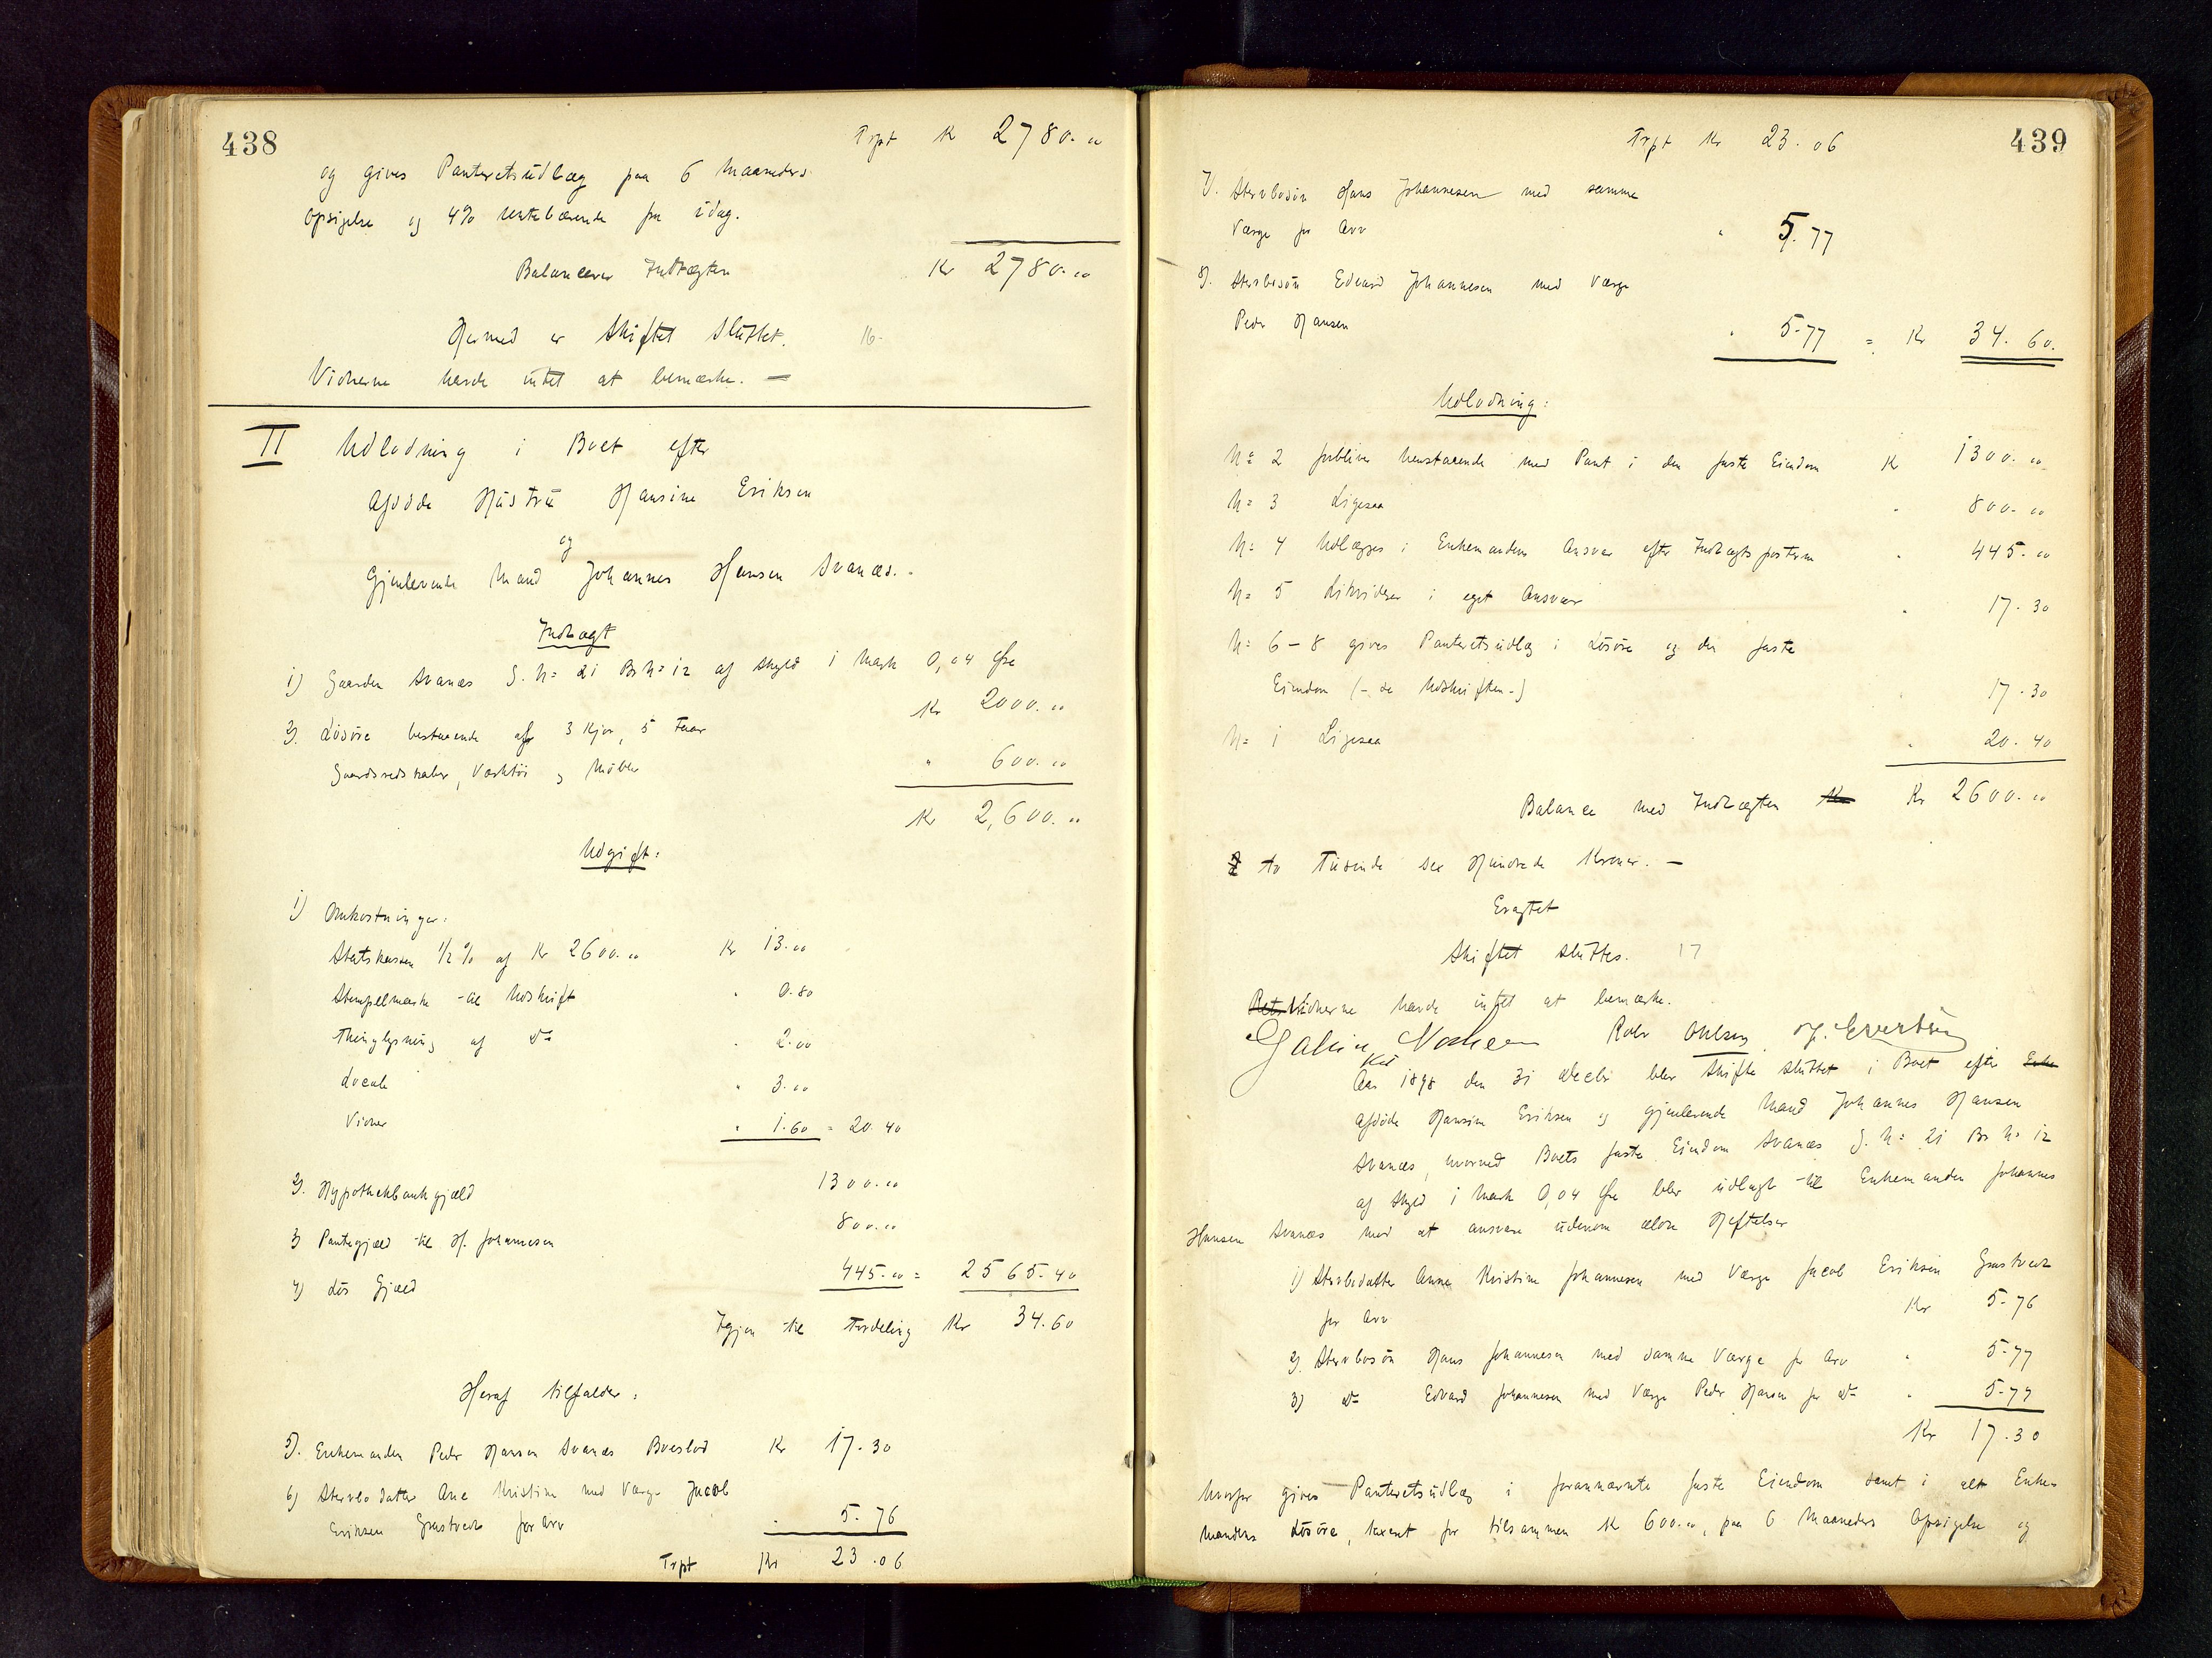 438
Trpt Kr 2780.00
og gives Panteretsudlæg paa 6 Maaneders
Opsigelse og 4% rentebærende fra idag.
Balancerer Indtægten Kr 2780.00
Hermed er Skiftet sluttet. 16-
Vidnerne havde intet at bemærke. —
II Udlodning i Boet efter
Afdøde Hustru Hansine Eriksen
og
Gjenlevende Mand Johannes Hansen Svanæs.-
Indtægt
1) Gaarden Svanæs G. N= 21 Br N= 12 af Skyld 1 Mark 0,04 Øre
Kr 2000.00
2). Løsøre bestaaende af 3 Kjør, 5 Faar
Gaardsredskaber, Værktøi og Møbler " 600.00
Kr 2,600.00
Udgift:
1) Omkostninger:
Statskassen 1/2 % af Kr 2600.00 Kr 13.00
Stempelmærke til Udskrift " 0.80
Thinglysning af do " 2.00
Locale " 3.00
Vidner " 1.60 = 20.40
2). Hypothekbankgjæld 1300.00
3) Pantegjæld til H. Johannesen 800.00
4) Løs Gjæld 445.00 = 2565.40
Igjen til Fordeling Kr 34.60
Heraf tilfalder:
5). Enkemanden Peder Hansen Svanæs Boeslod Kr 17.30
6) Stervbodatter Ane Kristine med Værge Jacob
Eriksen Grastveit for Arv " 5.76
Trpt Kr 23.06
439
Trpt Kr 23.06
7). Stervbosøn Hans Johannesen med samme
Værge for Arv " 5.77
8). Stervbosøn Edvard Johannesen med Værge
Peder Hansen " 5.77 = Kr 34.60.
Udlodning:
N= 2 forbliver henstaaende med Pant i den faste Eiendom Kr 1300.00
N= 3 Ligesaa " 800.00
N= 4 Udlægges i Enkemandens Ansvar efter Indtægtsposterne " 445.00
N= 5 Likviderer i eget Ansvar " 17.30
N= 6-8 gives Panteretsudlæg i Løsøre og den faste
Eiendom (- se Udskriften-) " 17.30
N= 1 Ligesaa " 20.40
Balance med Indtægten Kr Kr 2600.00
to Tusinde sex Hundrede Kroner. —
Eragtet
Skiftet sluttes. 17
Vidnerne havde intet at bemærke.
Rolv Ohlsen
Aar 1898 den 31 Decbr blev Skifte sluttet i Boet efter Enke
Afdøde Hansine Eriksen og gjenlevende Mand Johannes Hansen
Svanæs, hvorved Boets faste Eiendom Svanæs G. N= 21 Br N= 12
af Skyld 1 Mark 0,04 Øre blev udlagt til Enkemanden Johannes
Hansen Svanæs med at ansvare udenom ældre Heftelser
1) Stervbodatter Anne Kristine Johannesen med Værge Jacob Eriksen Grastveit
for Arv Kr 5.76
2). Stervbosøn Hans Johannesen med samme Værge for Arv " 5.77
3) do Edvard Johannesen med Værge Peder Hansen for do " 5.77
Kr 17.30
hvorfor gives Panteretsudlæg i forannævnte faste Eiendom samt i alt Enke-
mandens Løsøre, taxeret for tilsammen Kr 600.00, paa 6 Maaneders Opsigelse og